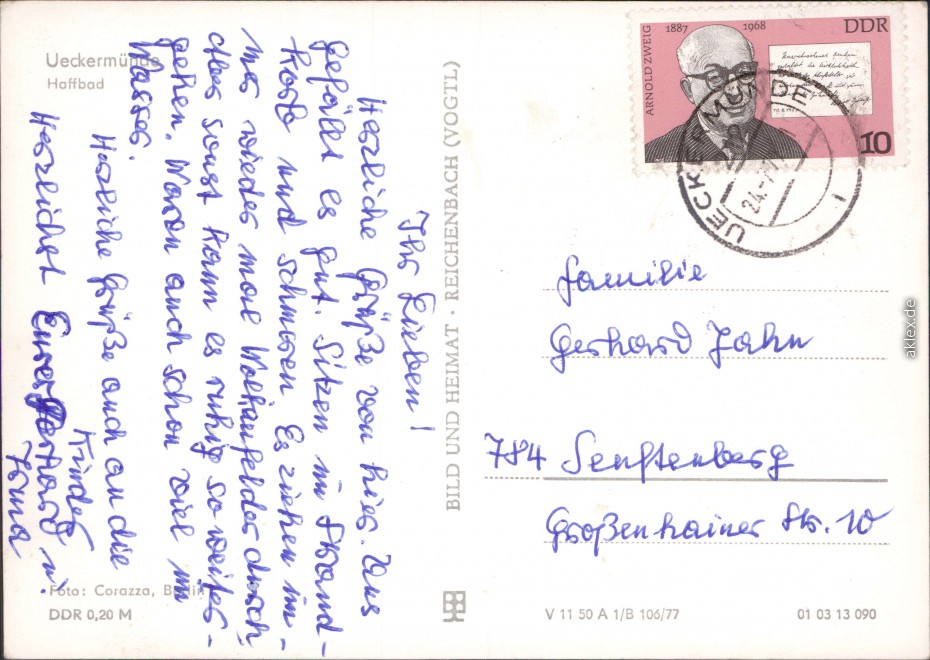 Ueckermünde
Haffbad
Ihr Lieben!
Herzliche Grüße von hier. Uns
gefällt es gut. Sitzen im Strand-
korb und schmoren. Es ziehen im-
mer wieder mal Wolkenfelder durch
aber sonst kann es ruhig so weiter-
gehen. Waren auch schon viel im
Wasser.
Herzliche Grüße auch an die
Kinder
Herzlichst Eure
Irma
Foto: Corazza, Berlin
DDR 0,20 M
BILD UND HEIMAT · REICHENBACH (VOGTL)
ARNOLD ZWEIG
1887 1968
DDR
10
UECKERMÜNDE 1
24.-7
Familie
Gerhard Jahn
784 Senftenberg
Großenhainer Str. 10
V 11 50 A 1/B 106/77
01 03 13 090
aklex.de